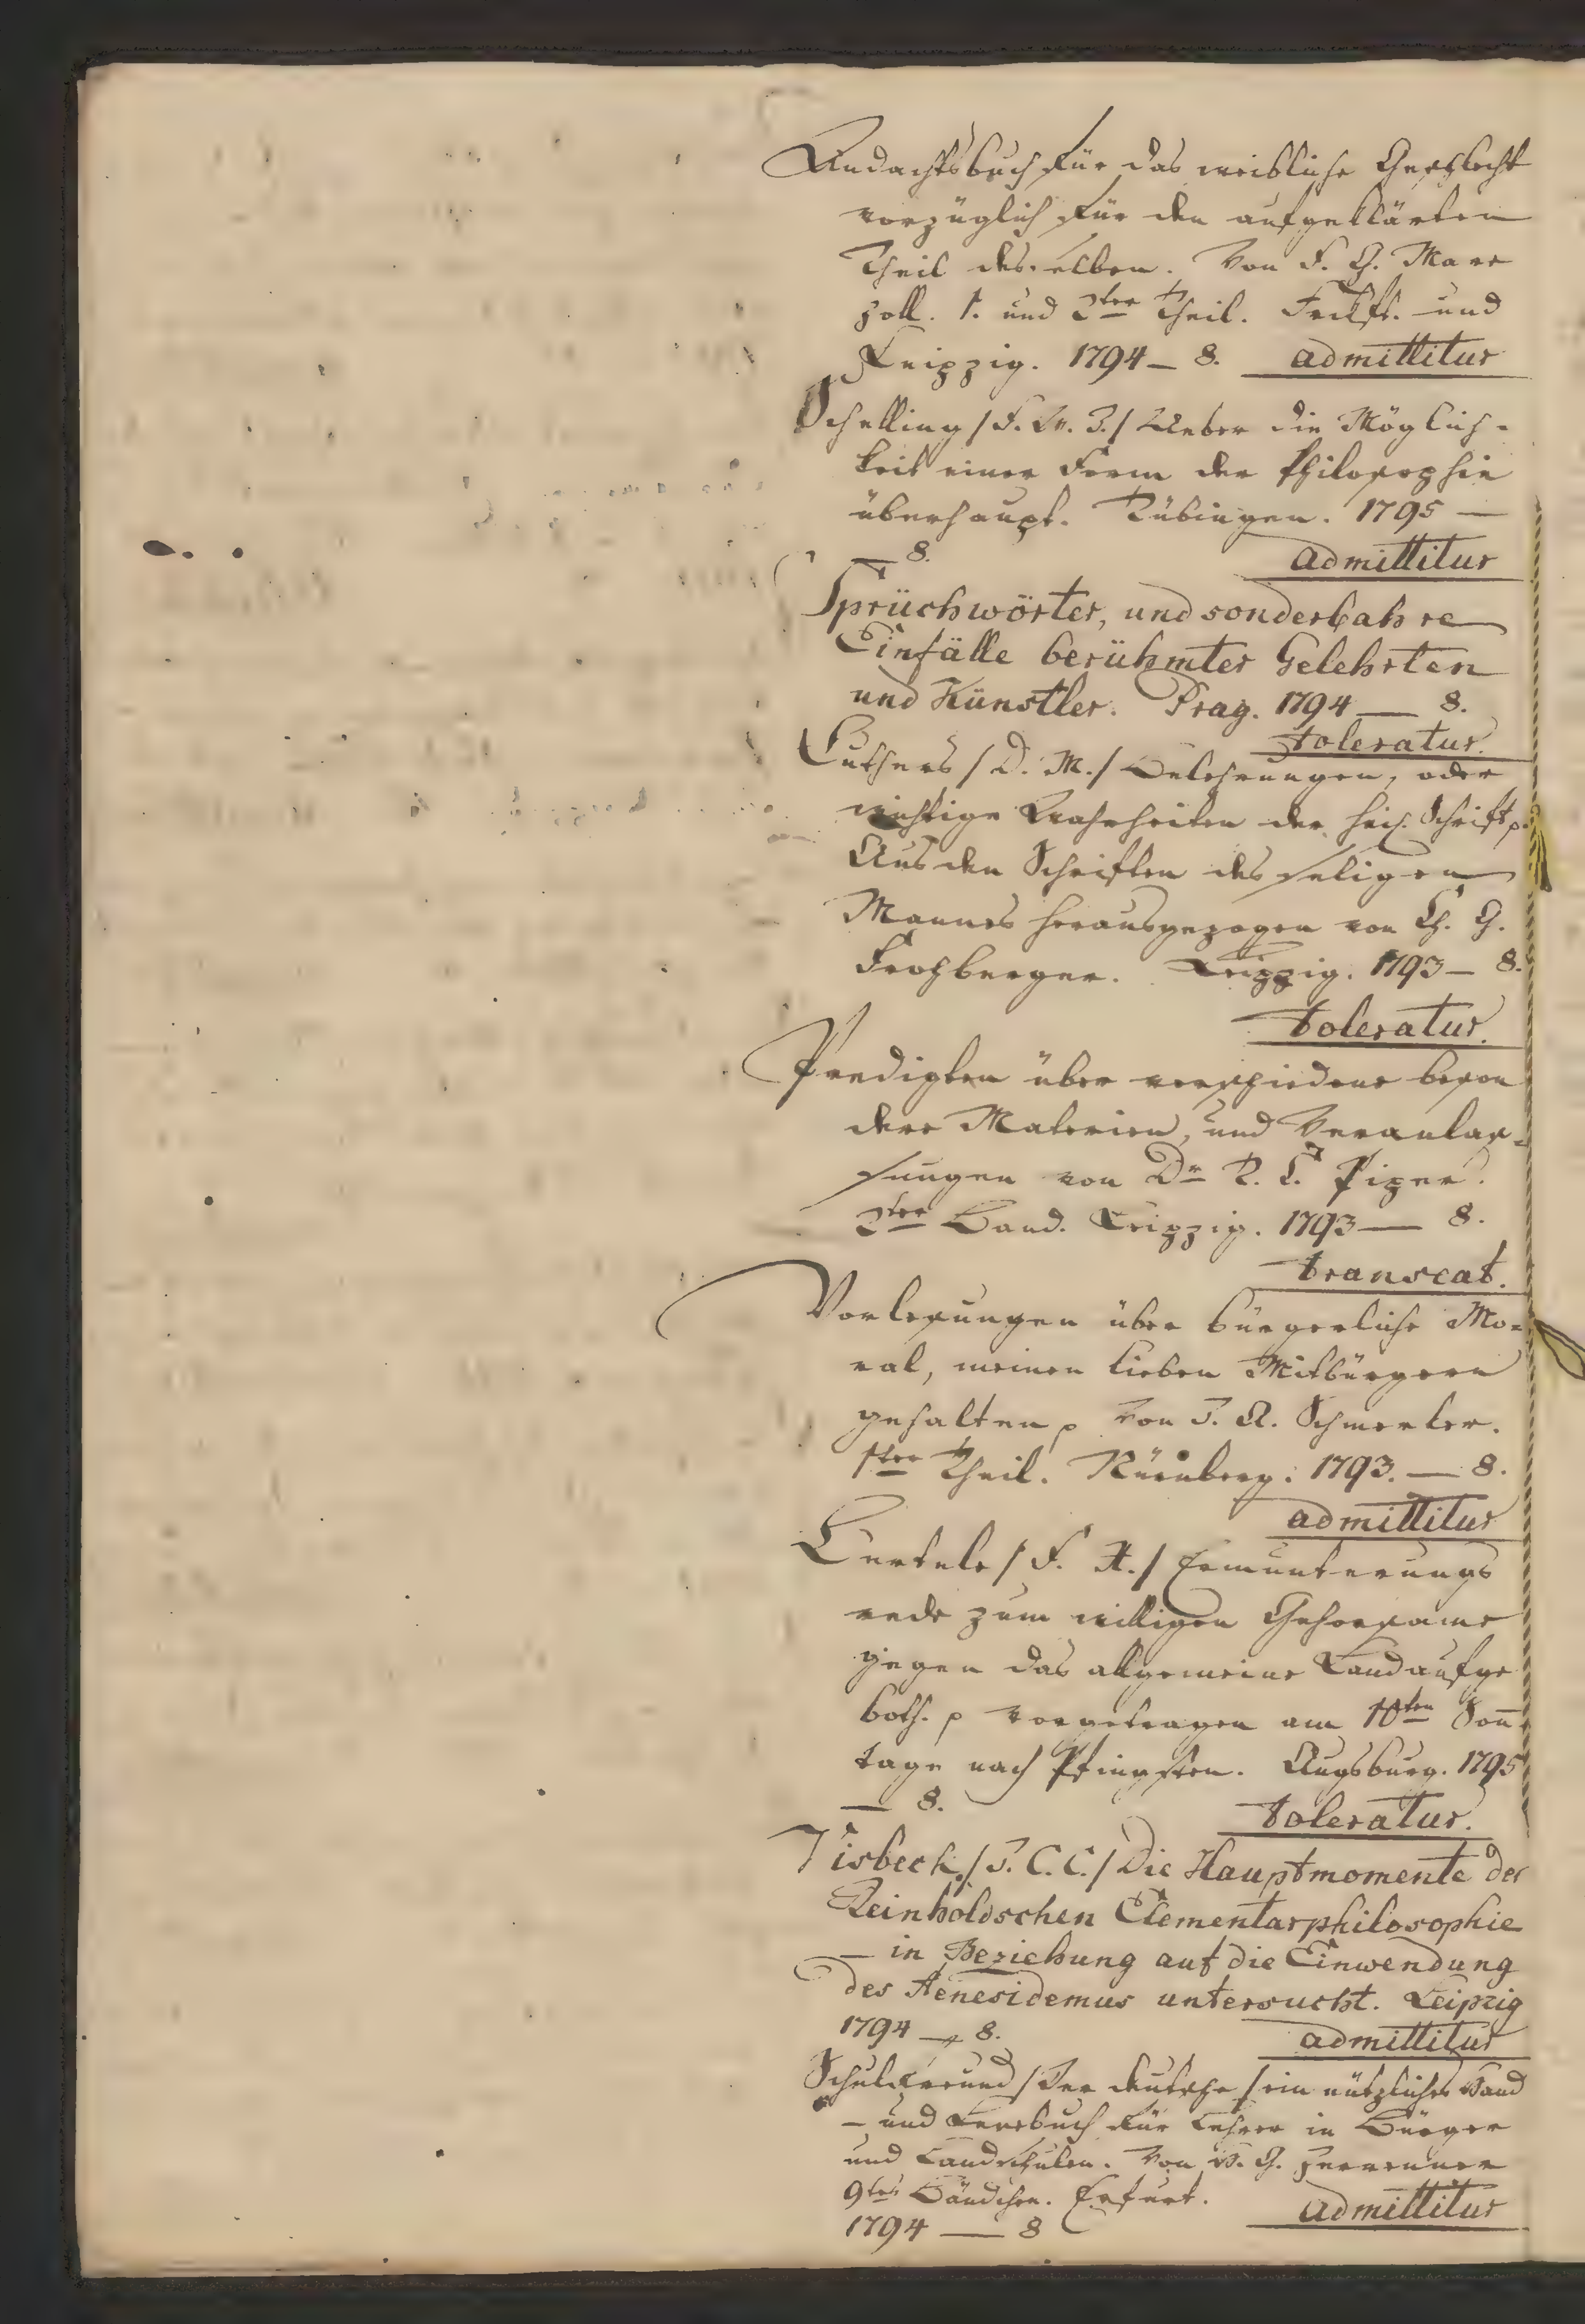 Andachtsbuch für das weibliche Geschlecht
vorzüglich für den aufgeklärten
Theil desselben. Von F. G. Mare
zoll. 1. und 2ter Theil. Frkft. und
Leipzig. 1794 — 8. admittitur
Schelling / F. W. J. / Ueber die Möglich-
keit einer Form der Philosophie
überhaupt. Tübingen. 1795 —
— 8. admittitur
Sprüchwörter, und sonderbahre
Einfälle berühmter Gelehrten
und Künstler. Prag. 1794 — 8.
toleratur.
Luthers / D. M. / Belehrungen, oder
wichtige Wahrheiten der heil. Schrift p.
Aus den Schriften des seligen
Mannes herausgezogen von Ch. G.
Frohberger. Leipzig. 1793 — 8.
toleratur.
Predigten über verschiedene beson
dere Materien, und Veranlas-
sungen von Dr T. C. Piper.
2ter Band. Leipzig. 1793 — 8.
transeat.
Vorlesungen über bürgerliche Mo-
ral, meinen lieben Mitbürgern
gehalten p von J. A. Schmerler.
1ter Theil. Nürnberg. 1793. — 8.
admittitur
/ F. X. / Ermunterungs
rede zum willigen Gehorsame
gegen das allgemeine Landaufge
both. p vorgetragen am 10ten Son̄
tage nach Pfingsten. Augsburg. 1795
— 8. toleratur.
Visbeck / J. C. C. / Die Hauptmomente der
Reinholdschen Elementarphilosophie
— in Beziehung auf die Einwendung
des Aenesidemus untersucht. Leipzig
1794 — 8. admittitur
Schulfreund / Der deutsche / ein nützliches Hand
— und Lesebuch für Lehrer in Bürger
und Landschulen. Von H. G. Zerrenner
9tes Bändchen. Erfurt. admittitur
1794 — 8